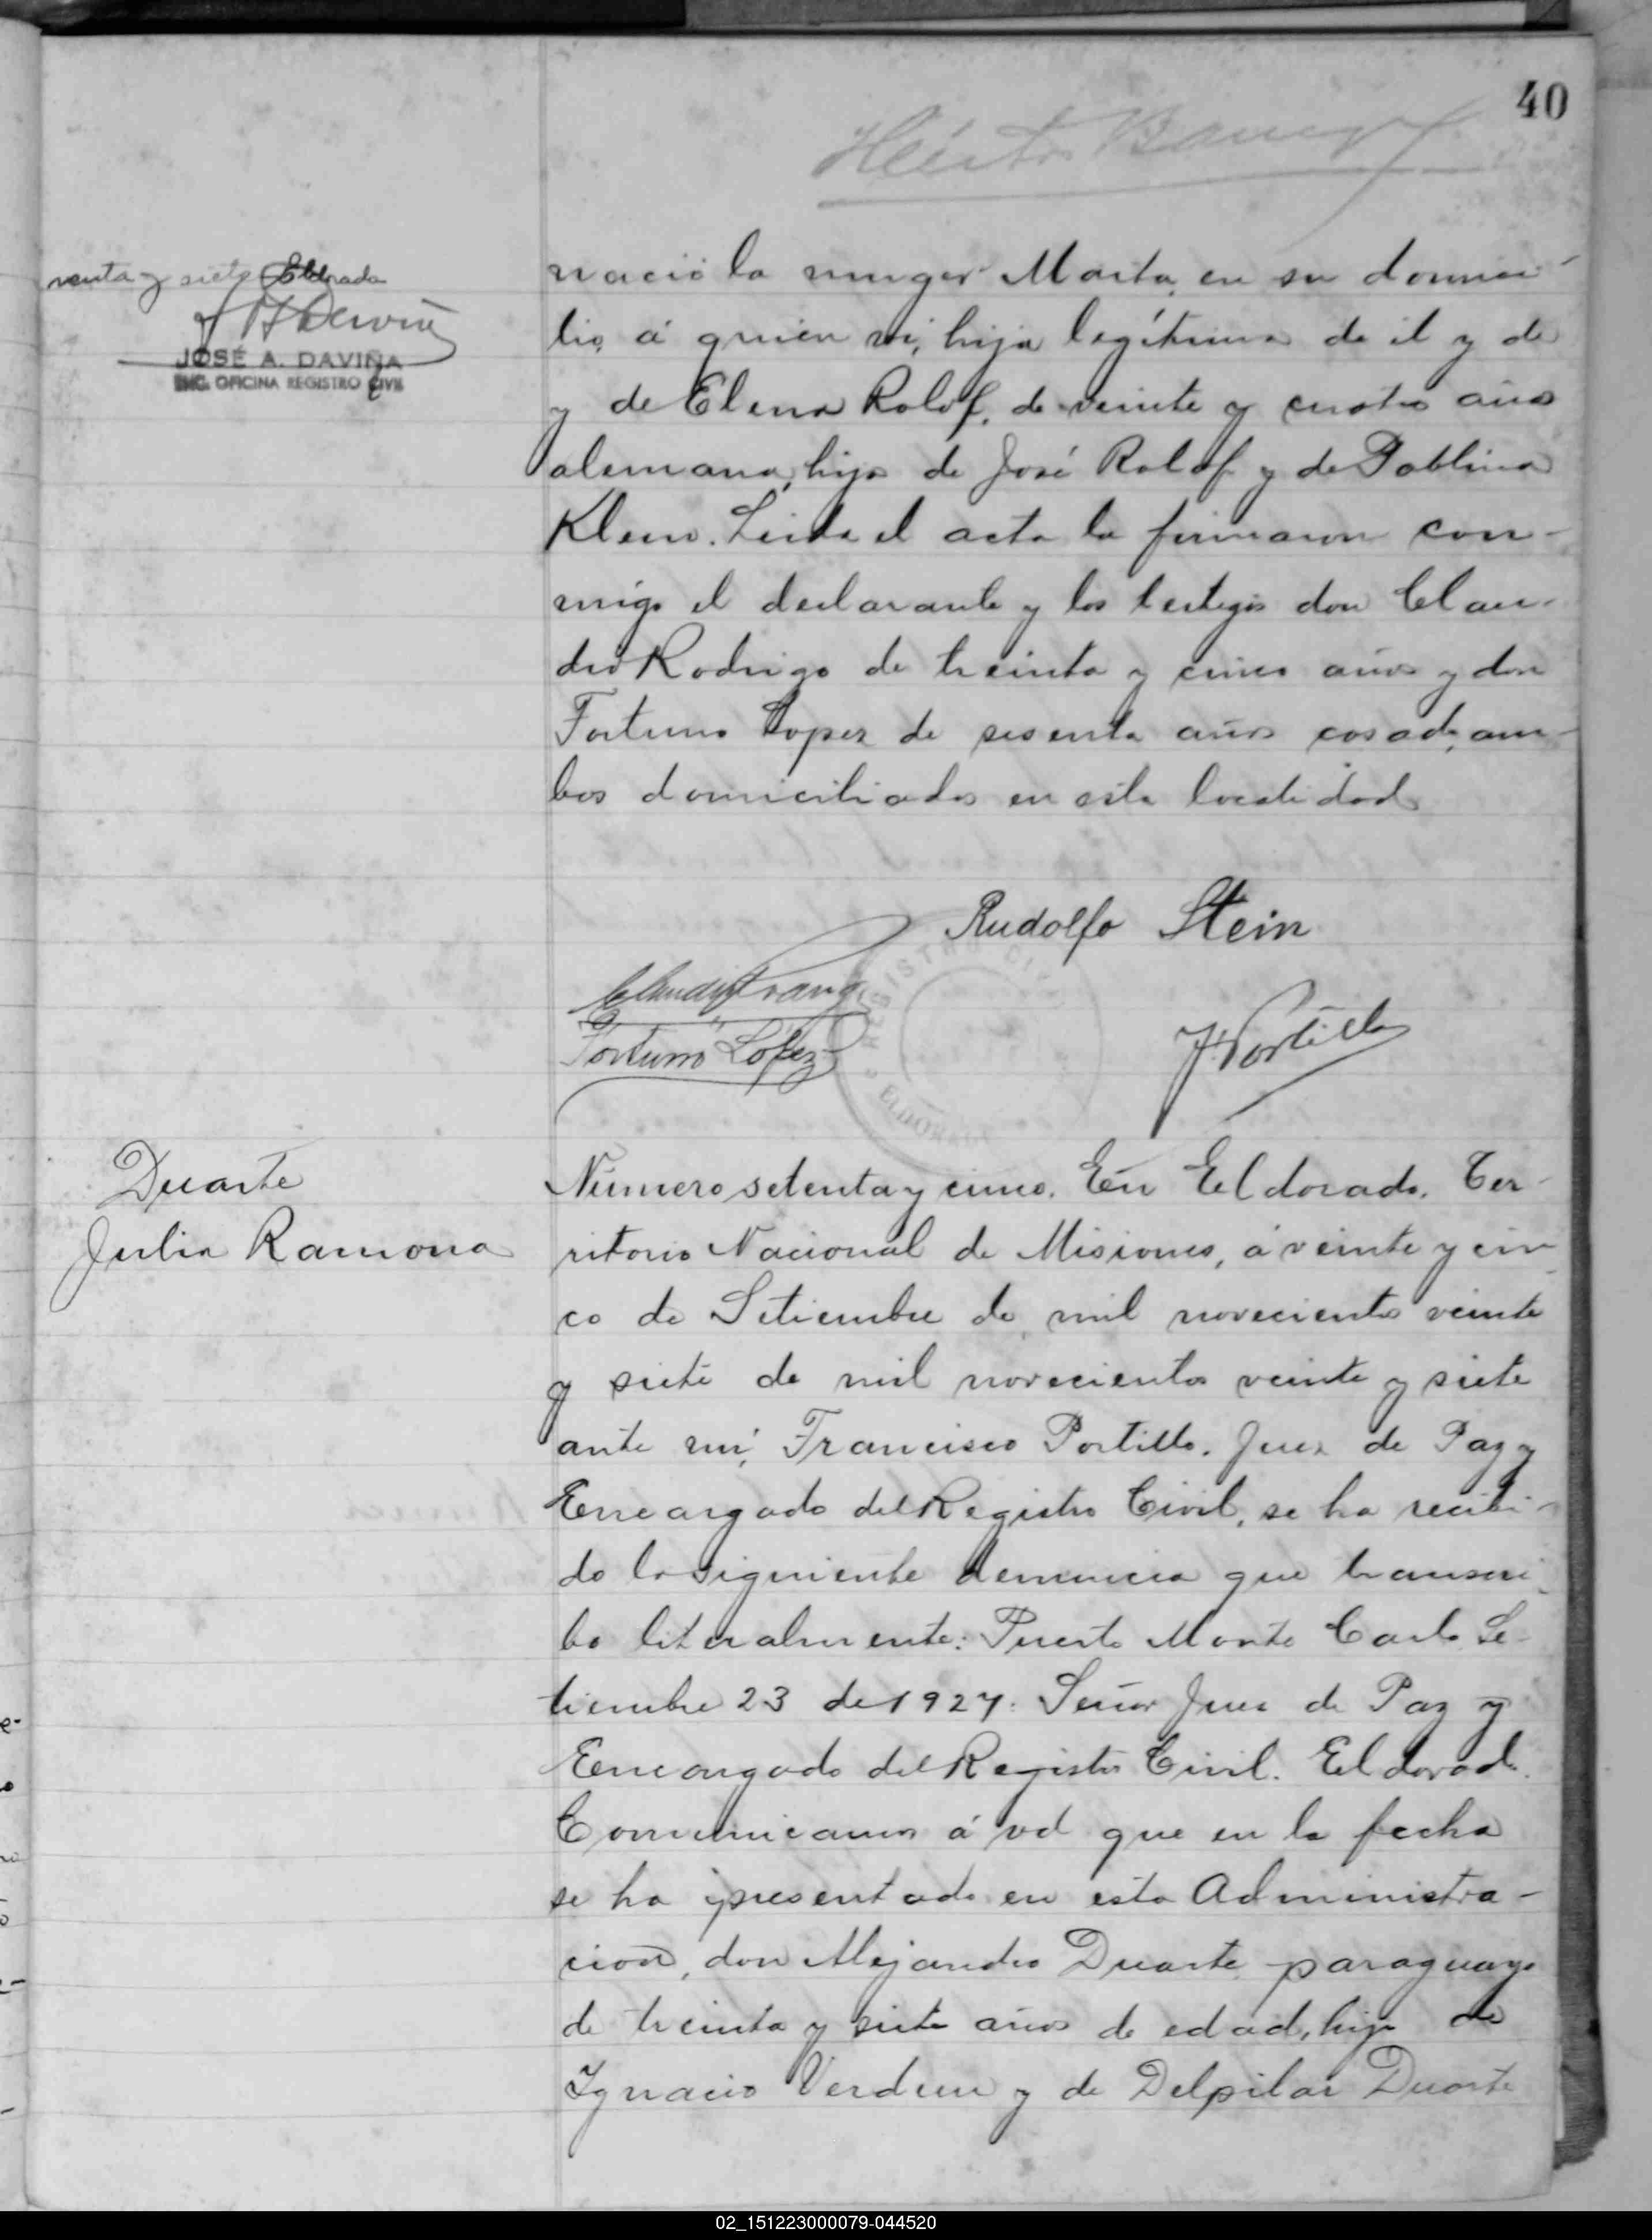 40
venta y siete Eldorado
JOSÉ A. DAVIÑA
ENC. OFICINA REGISTRO CIVIL
nació la muger Marta, en su domici-
lio, á quien ví, hija legítima de él y de
y de Elena Rolof, de veinte y cuatro años
alemana, hija de José Rolof y de Pablina
Klein. Leida el acta la firmaron con-
migo el declarante y los testigos don Clau-
dio Rodrigo de treinta y cinco años y don
Fortuno Lopez de sesenta años casado, am-
bos domiciliados en esta localidad
Rudolfo Stein
Fortuno López
F. Portillo
REGISTRO CIVIL
ELDORADO
Duarte
Julia Ramona
Número setenta y cinco. En Eldorado. Ter-
ritorio Nacional de Misiones, á veinte y cin-
co de Setiembre de mil novecientos veinte
y siete de mil novecientos veinte y siete
ante mí, Francisco Portillo. Juez de Paz y
Encargado del Registro Civil, se ha recibi-
do la siguiente denuncia que transcri-
bo literalmente: Puerto Monte Carlo Se-
tiembre 23 de 1927. Señor Juez de Paz y
Encargado del Registro Civil. Eldorado.
Comunicamos á vd que en la fecha
se ha presentado en esta Administra-
cion, don Alejandro Duarte paraguayo
de treinta y siete años de edad, hijo de
Ignacio Verdun y de Delpilar Duarte
02_151223000079-044520